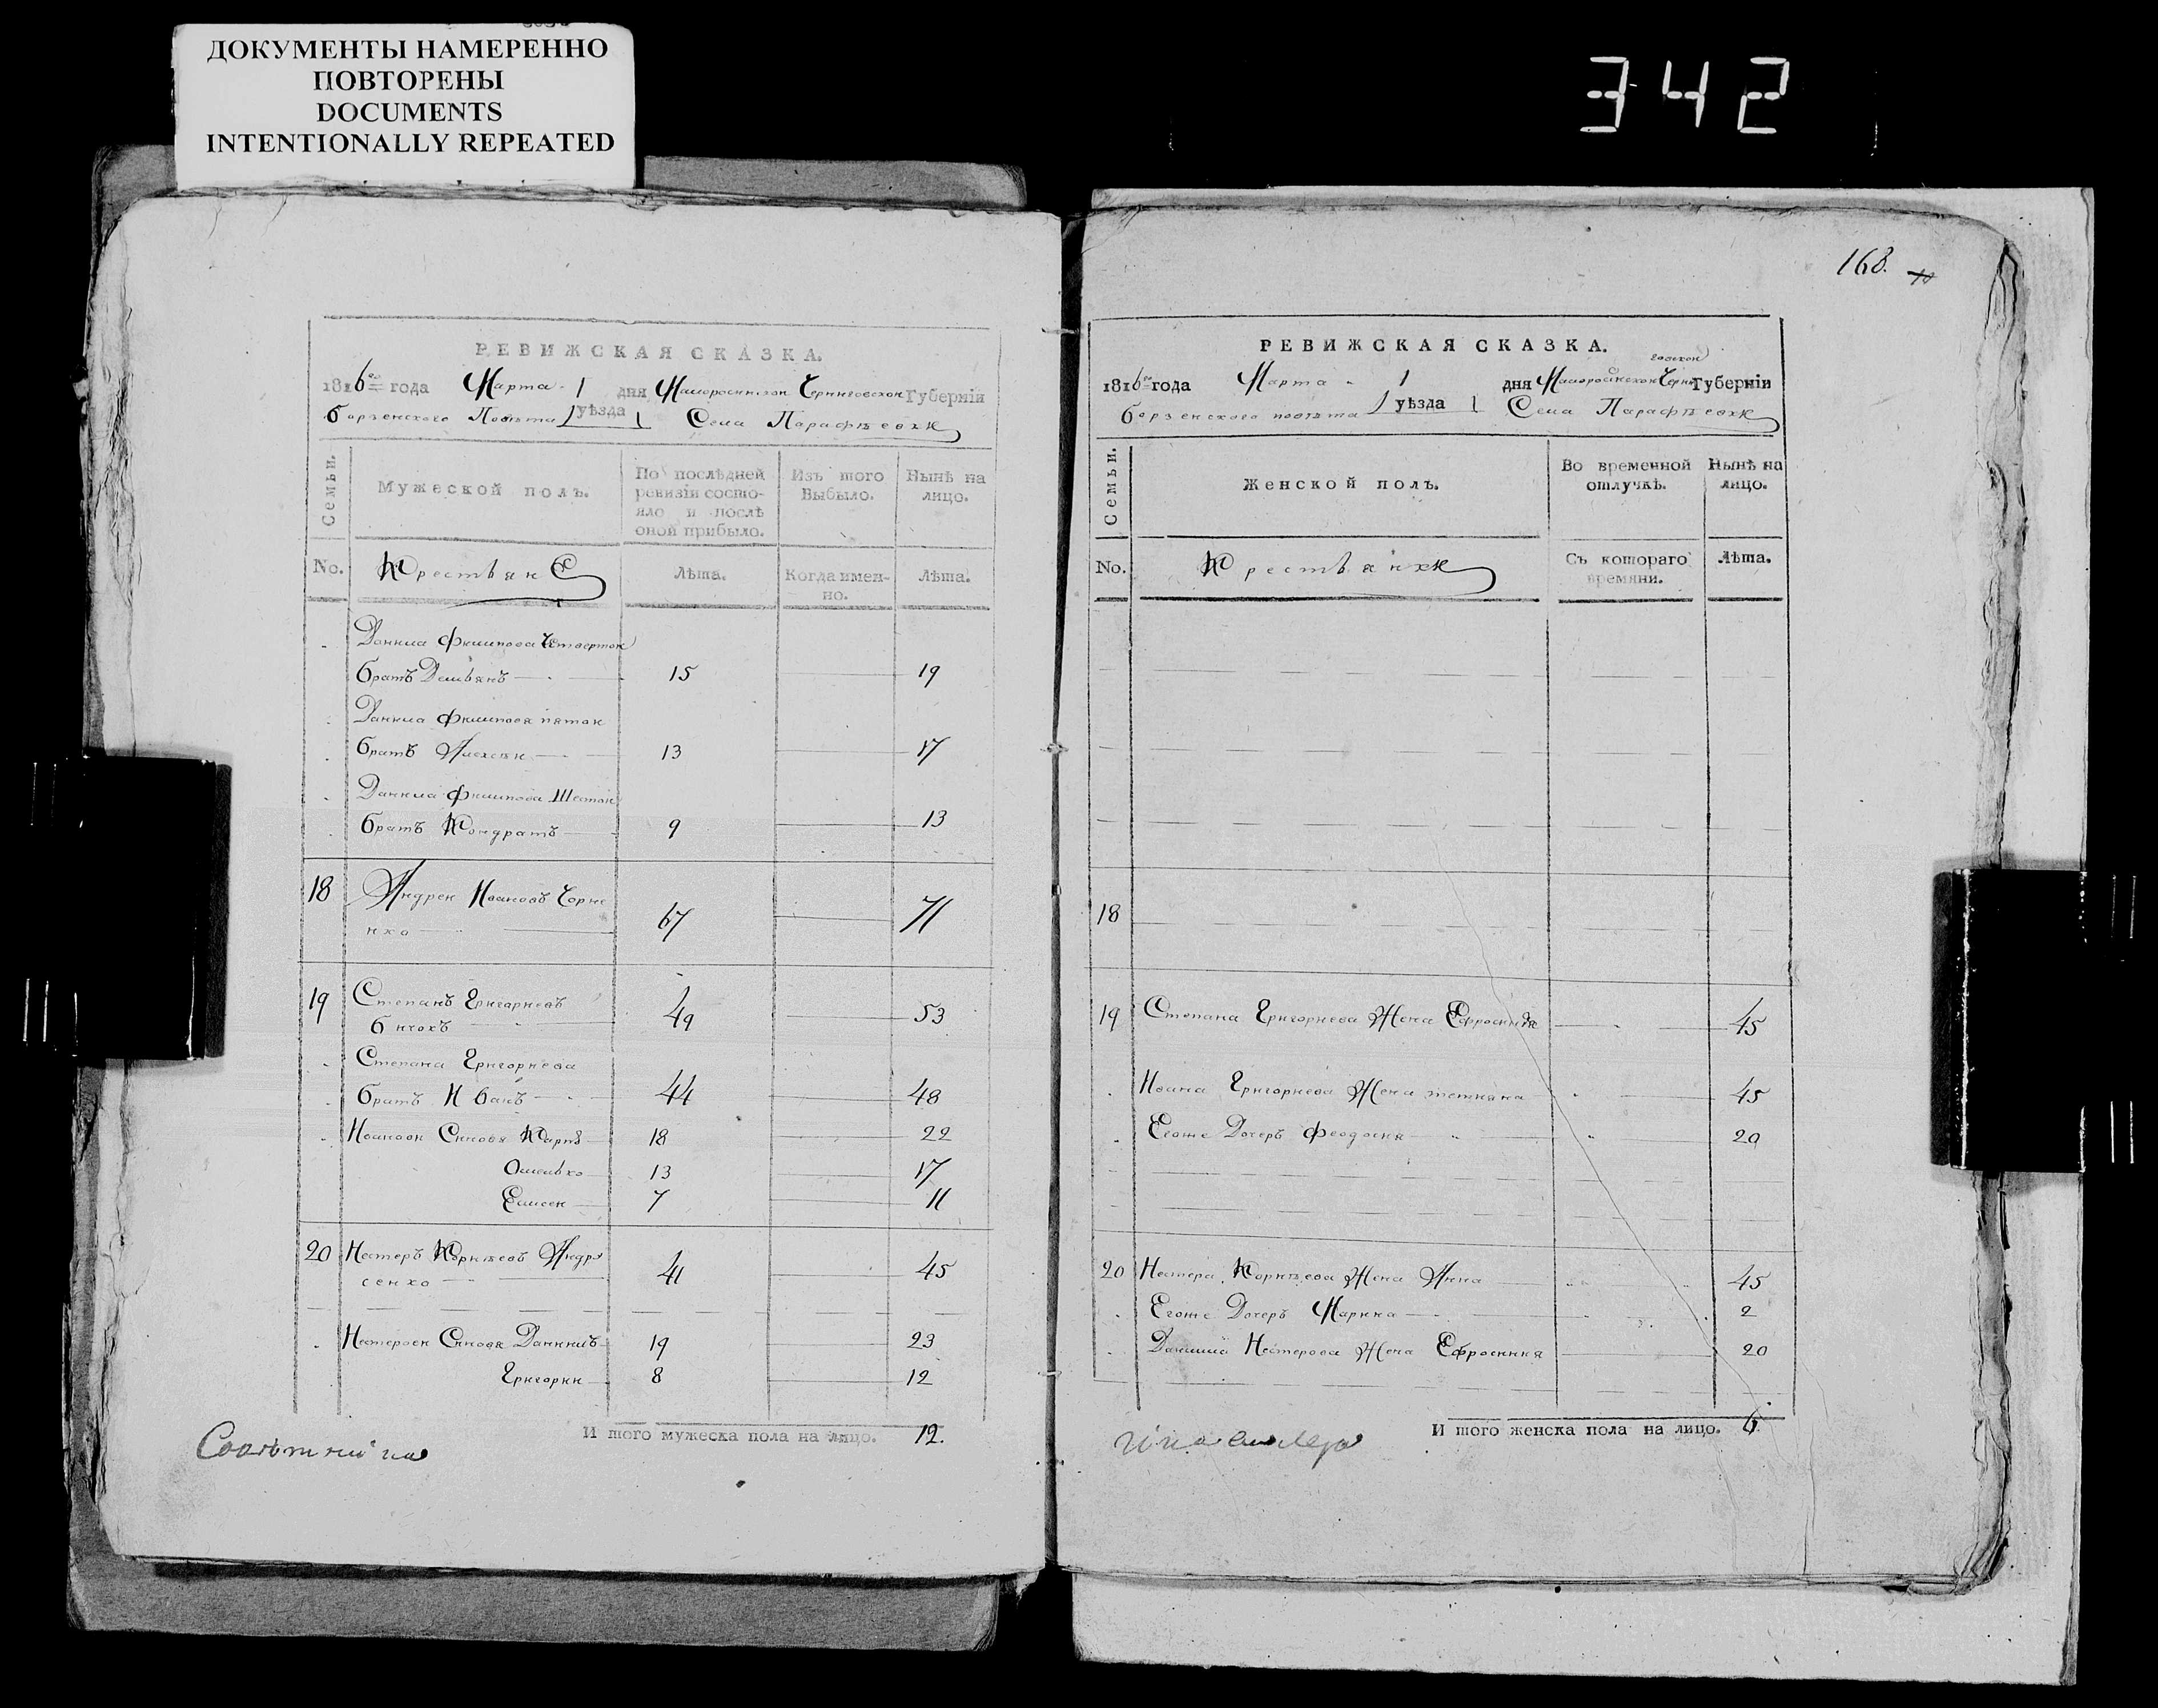 ДОКУМЕНТЫ НАМЕРЕННО
ПОВТОРЕНЫ
DOCUMENTS
INTENTIONALLY REPEATED
342
РЕВИЖСКАЯ СКАЗКА.
1816го года Марта 1 дня Малороссийской Черниговской Губерніи
борзенского Повѣта уѣзда Села Парафѣевки
Семьи.
Мужеской полъ.
По послѣдней ревизіи состо-
яло и послѣ
оной прибыло.
Изъ того
Выбыло.
Нынѣ на
лицо.
No.
Крестьяне
Лѣта.
Когда имен-
но.
Лѣта.
Данила Филипова Четвертой
братъ Демьянъ 15 19
Данила Филипова пятой
братъ Алексѣй 13 17
Данила Филипова Шестой
братъ Кондратъ 9 13
18 Андрей Ивановъ Чорне
нко 67 71
19 Степанъ Григорьевъ
бичокъ 49 53
Степана Григорьева
братъ Иванъ 44 48
Ивановы Сыновя Карпъ 18 22
Омелько 13 17
Елисей 7 11
20 Нестеръ Корнѣевъ Андре
сенко 41 45
Нестеровы Сыновя Даниилъ 19 23
Григорий 8 12
И того мужеска пола на лицо. 12.
168.
РЕВИЖСКАЯ СКАЗКА.
1816го года Марта 1 дня Малоросийской Черниговской Губерніи
борзенского повѣта уѣзда Села Парафѣевки
Семьи.
Женской полъ.
Во временной
отлучкѣ.
Нынѣ на
лицо.
No.
Крестьянки
Съ котораго
времяни.
Лѣта.
18
19 Степана Григорьева Жена Ефросинія 45
Ивана Григорьева Жена татияна 45
Егоже Дочерь Феодосия 20
20 Нестера Корнѣева Жена Анна 45
Егоже Дочерь Марина 2
Данила Нестерова Жена Ефросиния 20
И того женска пола на лицо. 6